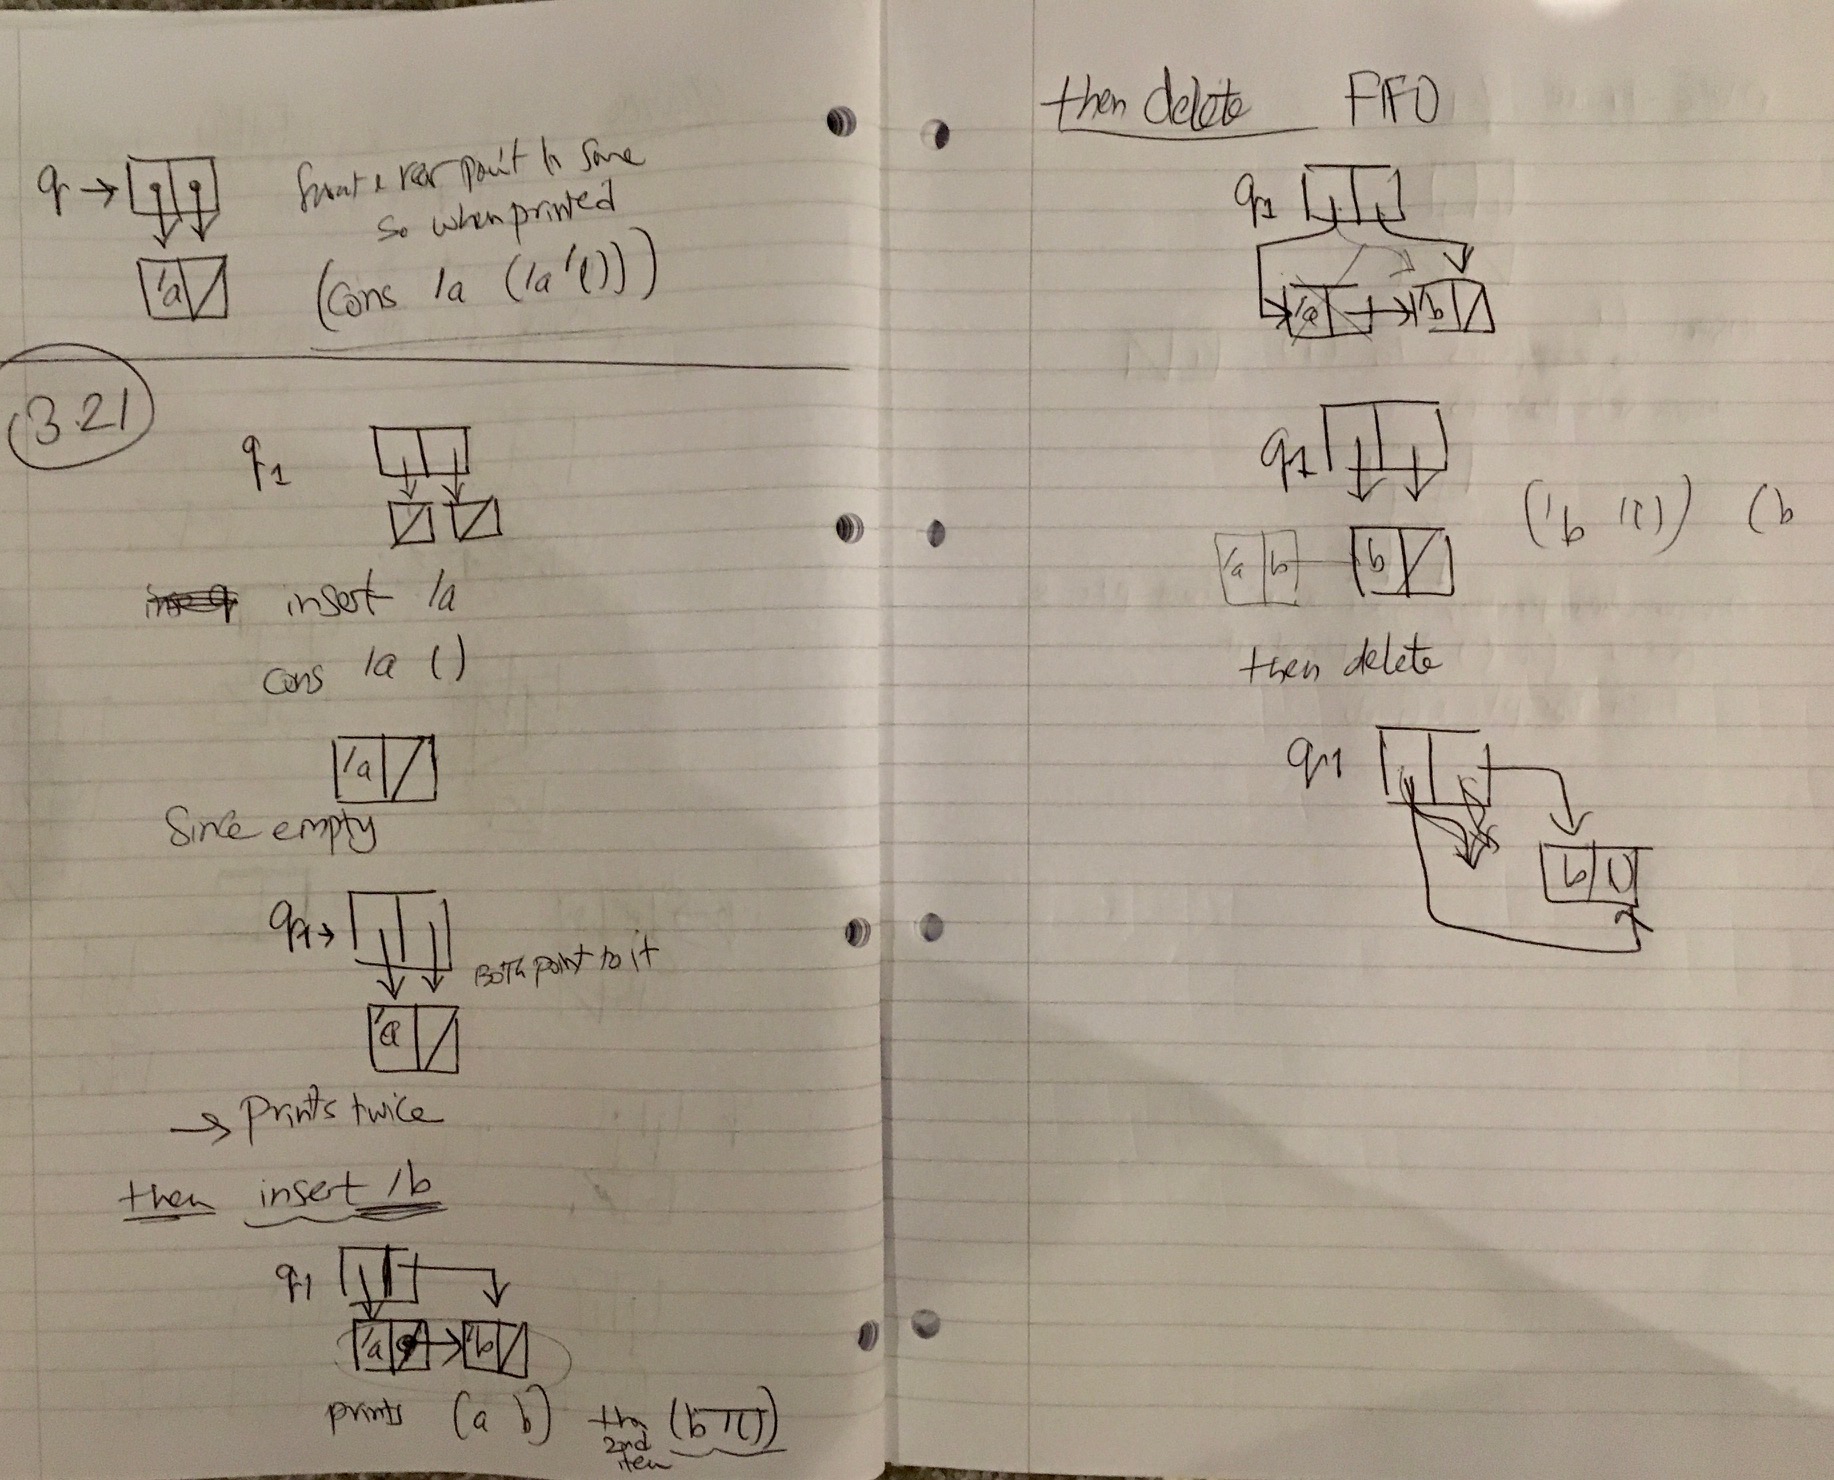 q → front & rear point to same
so when printed
'a (cons 'a ('a '()))
3.21
q1
insert 'a
cons 'a ()
'a
Since empty
q1 →
Both point to it
'a
→ Prints twice
then insert 'b
q1
'a 'b
prints (a b) then (b '())
2nd
item
then delete FIFO
q1
'a 'b
q1
('b '()) (b
'a b b
then delete
q1
b ()